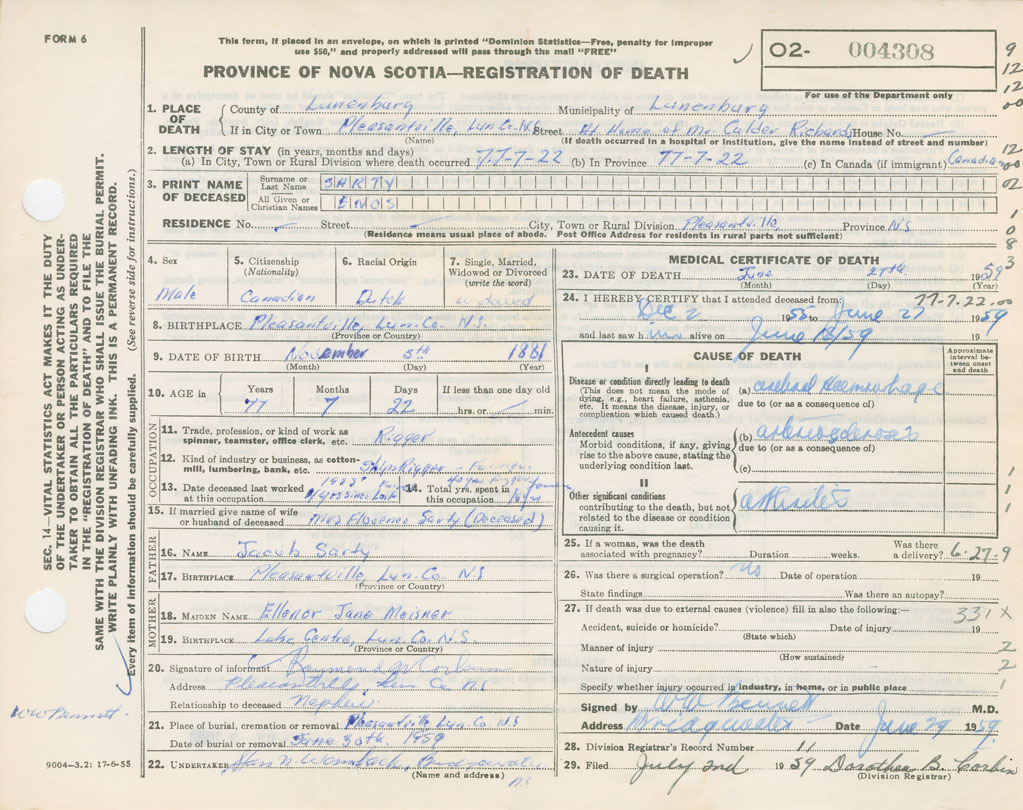 FORM 6
This form, if placed in an envelope, on which is printed "Dominion Statistics—Free, penalty for improper
use $50," and properly addressed will pass through the mail "FREE"
PROVINCE OF NOVA SCOTIA—REGISTRATION OF DEATH
O2- 004308
For use of the Department only
9
12
12
00
1. PLACE OF DEATH
County of Lunenburg Municipality of Lunenburg
If in City or Town Pleasantville, Lun. Co. N.S. Street At Home of Mr. Calder Richard House No.
(Name) (If death occurred in a hospital or institution, give the name instead of street and number)
2. LENGTH OF STAY (in years, months and days)
(a) In City, Town or Rural Division where death occurred 77-7-22 (b) In Province 77-7-22 (c) In Canada (if immigrant) Canadian
12
00
02
1
0
8
3
3. PRINT NAME OF DECEASED
Surname or Last Name SARTY
All Given or Christian Names ENOS
RESIDENCE No. Street City, Town or Rural Division Pleasantville Province N.S.
(Residence means usual place of abode. Post Office Address for residents in rural parts not sufficient)
4. Sex
Male
5. Citizenship
(Nationality)
Canadian
6. Racial Origin
Dutch
7. Single, Married, Widowed or Divorced
(write the word)
widowed
8. BIRTHPLACE Pleasantville, Lun. Co. N.S.
(Province or Country)
9. DATE OF BIRTH November 5th 1881
(Month) (Day) (Year)
10. AGE in
Years Months Days If less than one day old
77 7 22 hrs. or min.
OCCUPATION
11. Trade, profession, or kind of work as
spinner, teamster, office clerk, etc. Rigger
12. Kind of industry or business, as cotton-
mill, lumbering, bank, etc. Ship Rigger
13. Date deceased last worked
at this occupation
14. Total yrs. spent in
this occupation
15. If married give name of wife
or husband of deceased Mrs Florence Sarty (Deceased)
FATHER
16. NAME Jacob Sarty
17. BIRTHPLACE Pleasantville, Lun. Co. N.S
(Province or Country)
MOTHER
18. MAIDEN NAME Ellenor Jane Meisner
19. BIRTHPLACE Lake Centre, Lun Co. N.S.
(Province or Country)
20. Signature of informant Raymond W Corbin
Address Pleasantville, Lun Co. N.S
Relationship to deceased Nephew
21. Place of burial, cremation or removal Pleasantville, Lun. Co. N.S
Date of burial or removal June 30th. 1959
22. UNDERTAKER
(Name and address)
N.S.
MEDICAL CERTIFICATE OF DEATH
23. DATE OF DEATH June 27th 1959
(Month) (Day) (Year)
24. I HEREBY CERTIFY that I attended deceased from: 77.7.22.00
Dec 2 1955 to June 27 1959
and last saw him alive on June 18/59 19
CAUSE OF DEATH
Approximate interval between onset and death
I
Disease or condition directly leading to death
(This does not mean the mode of
dying, e.g., heart failure, asthenia,
etc. It means the disease, injury, or
complication which caused death.)
(a) cerebral Haemorrhage
due to (or as a consequence of)
Antecedent causes
Morbid conditions, if any, giving
rise to the above cause, stating the
underlying condition last.
(b) arteriosclerosis
due to (or as a consequence of)
(c)
II
Other significant conditions
contributing to the death, but not
related to the disease or condition
causing it.
arthritis
1
1
1
25. If a woman, was the death
associated with pregnancy? Duration weeks. Was there a delivery? 6-27-9
26. Was there a surgical operation? No Date of operation 19
State findings Was there an autopsy?
27. If death was due to external causes (violence) fill in also the following:— 331 X
Accident, suicide or homicide? Date of injury 19
(State which)
Manner of injury 2
(How sustained)
Nature of injury 2
Specify whether injury occurred in industry, in home, or in public place 1
Signed by W W Bennett M.D.
Address Bridgewater Date June 29 1959
28. Division Registrar's Record Number 11
29. Filed July 2nd 1959 Dorothea B. Corbin
(Division Registrar)
SEC. 14—VITAL STATISTICS ACT MAKES IT THE DUTY
OF THE UNDERTAKER OR PERSON ACTING AS UNDER-
TAKER TO OBTAIN ALL THE PARTICULARS REQUIRED
IN THE "REGISTRATION OF DEATH" AND TO FILE THE
SAME WITH THE DIVISION REGISTRAR WHO SHALL ISSUE THE BURIAL PERMIT.
WRITE PLAINLY WITH UNFADING INK. THIS IS A PERMANENT RECORD.
Every item of information should be carefully supplied. (See reverse side for instructions.)
W W Bennett
9004—3.2: 17-6-55